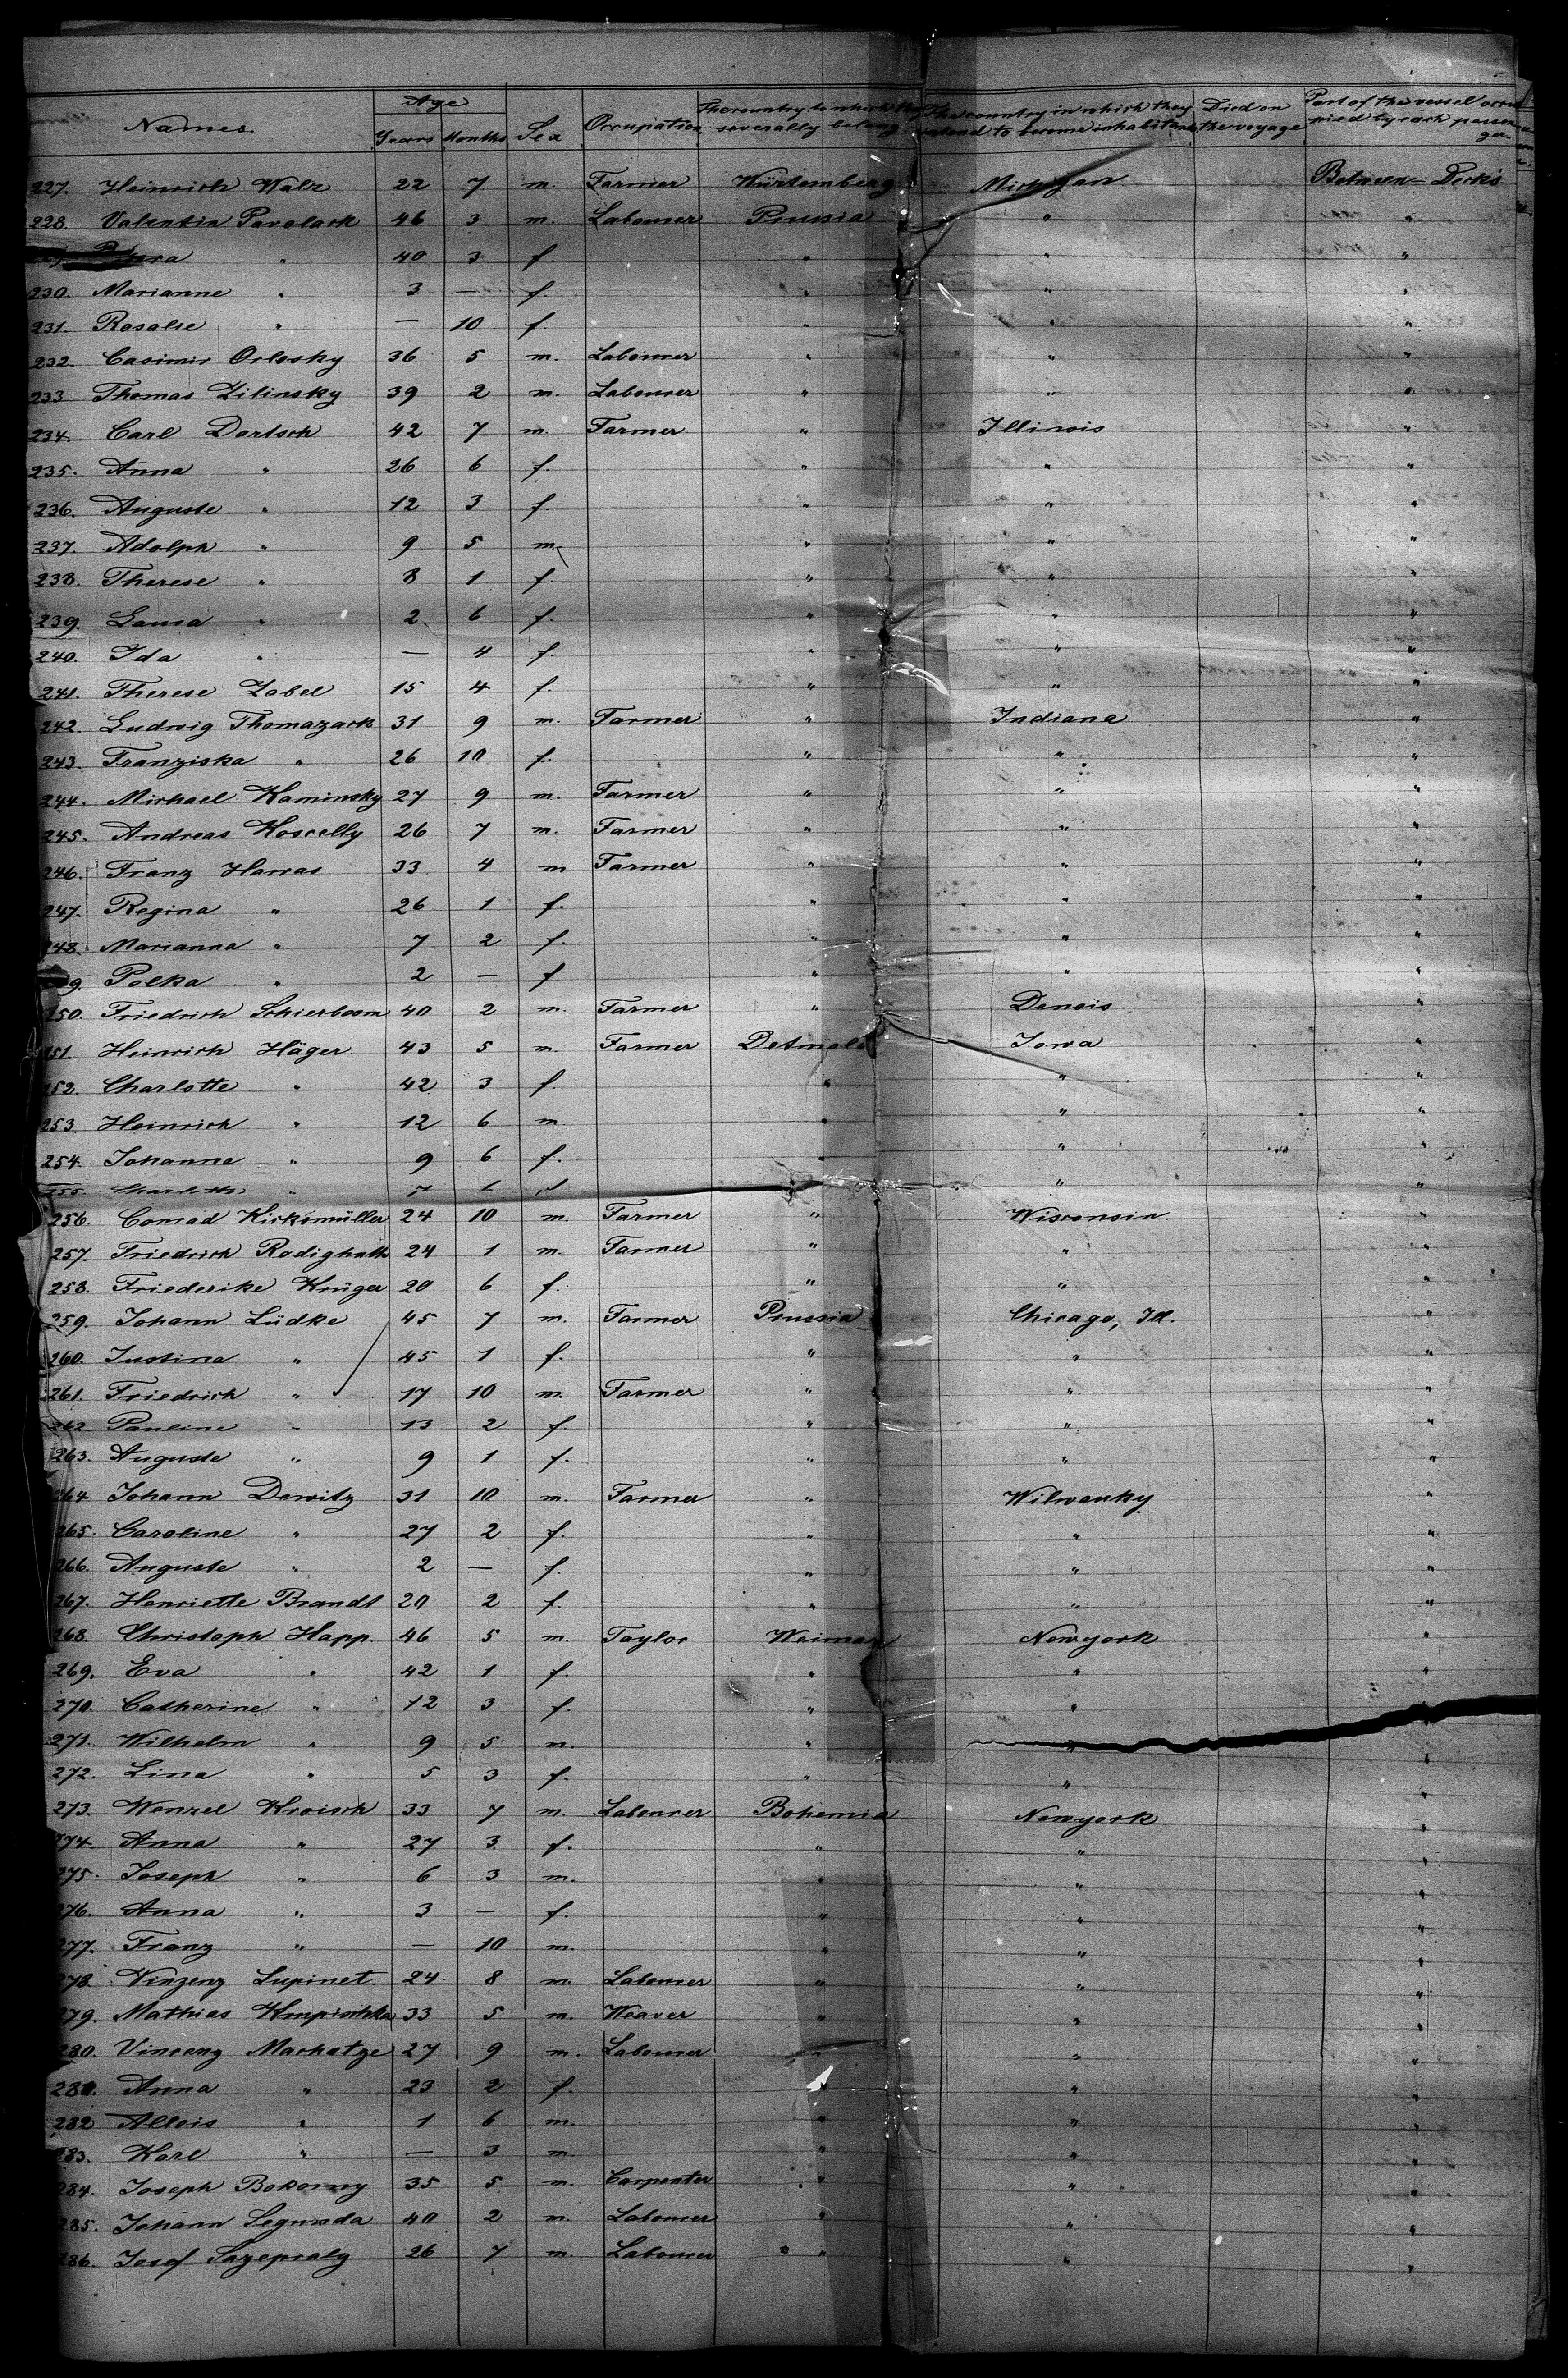 Names. Age Years Months Sex Occupation The country to which they severally belong The country in which they intend to become inhabitants Died on the voyage Part of the vessel occupied by each passenger
227. Heinrich Walz 22 7 m. Farmer Würtemberg Michigan Between-Decks
228. Valentin Pavolack 46 3 m. Labourer Prussia " "
" 40 3 f. " " "
230. Marianne " 3 — f. " " "
231. Rosalie " — 10 f. " " "
232. Casimir Orlosky 36 5 m. Labourer " " "
233 Thomas Zilinsky 39 2 m. Labourer " " "
234. Carl Dortsch 42 7 m. Farmer " Illinois "
235. Anna " 26 6 f. " " "
236. Auguste " 12 3 f. " " "
237. Adolph " 9 5 m. " " "
238. Therese " 8 1 f. " " "
239. Laura " 2 6 f. " " "
240. Ida " — 4 f. " " "
241. Therese Zabel 15 4 f. " " "
242. Ludwig Thomazack 31 9 m. Farmer " Indiana "
243. Franziska " 26 10 f. " " "
244. Michael Kaminsky 27 9 m. Farmer " " "
245. Andreas Koscelly 26 7 m. Farmer " " "
246. Franz Harras 33 4 m Farmer " " "
247. Regina " 26 1 f. " " "
248. Marianna " 7 2 f. " " "
9. Polka " 2 — f " " "
250. Friedrich Schierboom 40 2 m. Farmer " Denois "
251. Heinrich Häger 43 5 m. Farmer Detmold Iowa "
252. Charlotte " 42 3 f. " " "
253. Heinrich " 12 6 m " " "
254. Johanne " 9 6 f. " " "
255. " "
256. Conrad Kirksmüller 24 10 m. Farmer " Wisconsin "
257. Friedrich 24 1 m. Farmer " " "
258. Friederike Krüger 20 6 f. " " "
259. Johann Lüdke 45 7 m. Farmer Prussia Chicago, Ill. "
260. Justina " 45 1 f. " " "
261. Friedrich " 17 10 m. Farmer " " "
262. Pauline " 13 2 f. " " "
263. Auguste " 9 1 f. " " "
264 Johann Dewitz 31 10 m. Farmer " Wilwauky "
265. Caroline " 27 2 f. " " "
266. Auguste " 2 — f. " " "
267. Henriette Brandt 20 2 f. " " "
268. Christoph Happ. 46 5 m. Taylor Weimar Newyork "
269. Eva " 42 1 f. " " "
270. Catherine " 12 3 f. " " "
271. Wilhelm " 9 5 m. " " "
272. Lina " 5 3 f. " " "
273. Wenzel Kroisch 33 7 m. Labourer Bohemia Newyork "
274. Anna " 27 3 f. " " "
275. Joseph " 6 3 m. " " "
276. Anna " 3 — f. " " "
277. Franz " — 10 m. " " "
278. Vinzenz Lupinet 24 8 m. Labourer " " "
279. Mathias 33 5 m. Weaver " " "
280. Vincenz Machatze 27 9 m. Labourer " " "
281. Anna " 23 2 f. " " "
282 Allois " 1 6 m. " " "
283. Karl " — 3 m. " " "
284. Joseph Bokorny 35 5 m. Carpenter " " "
285. Johann 40 2 m. Labourer " " "
286. Josef 26 7 m. Labourer " " "